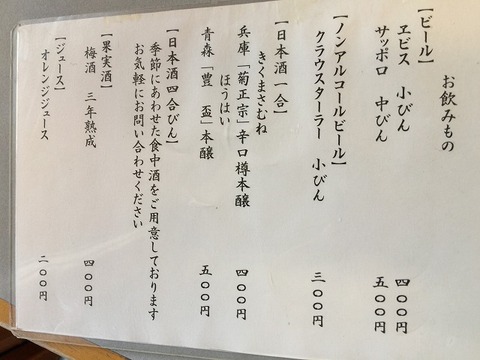 お飲みもの
【ビール】
ヱビス　小びん　四〇〇円
サッポロ　中びん　五〇〇円
【ノンアルコールビール】
クラウスターラー　小びん　三〇〇円
【日本酒一合】
きくまさむね
兵庫「菊正宗」辛口樽本醸　四〇〇円
ほうはい
青森「豊　盃」本醸　五〇〇円
【日本酒四合びん】
季節にあわせた食中酒をご用意しております
お気軽にお問い合わせください
【果実酒】
梅酒　三年熟成　四〇〇円
【ジュース】
オレンジジュース　二〇〇円